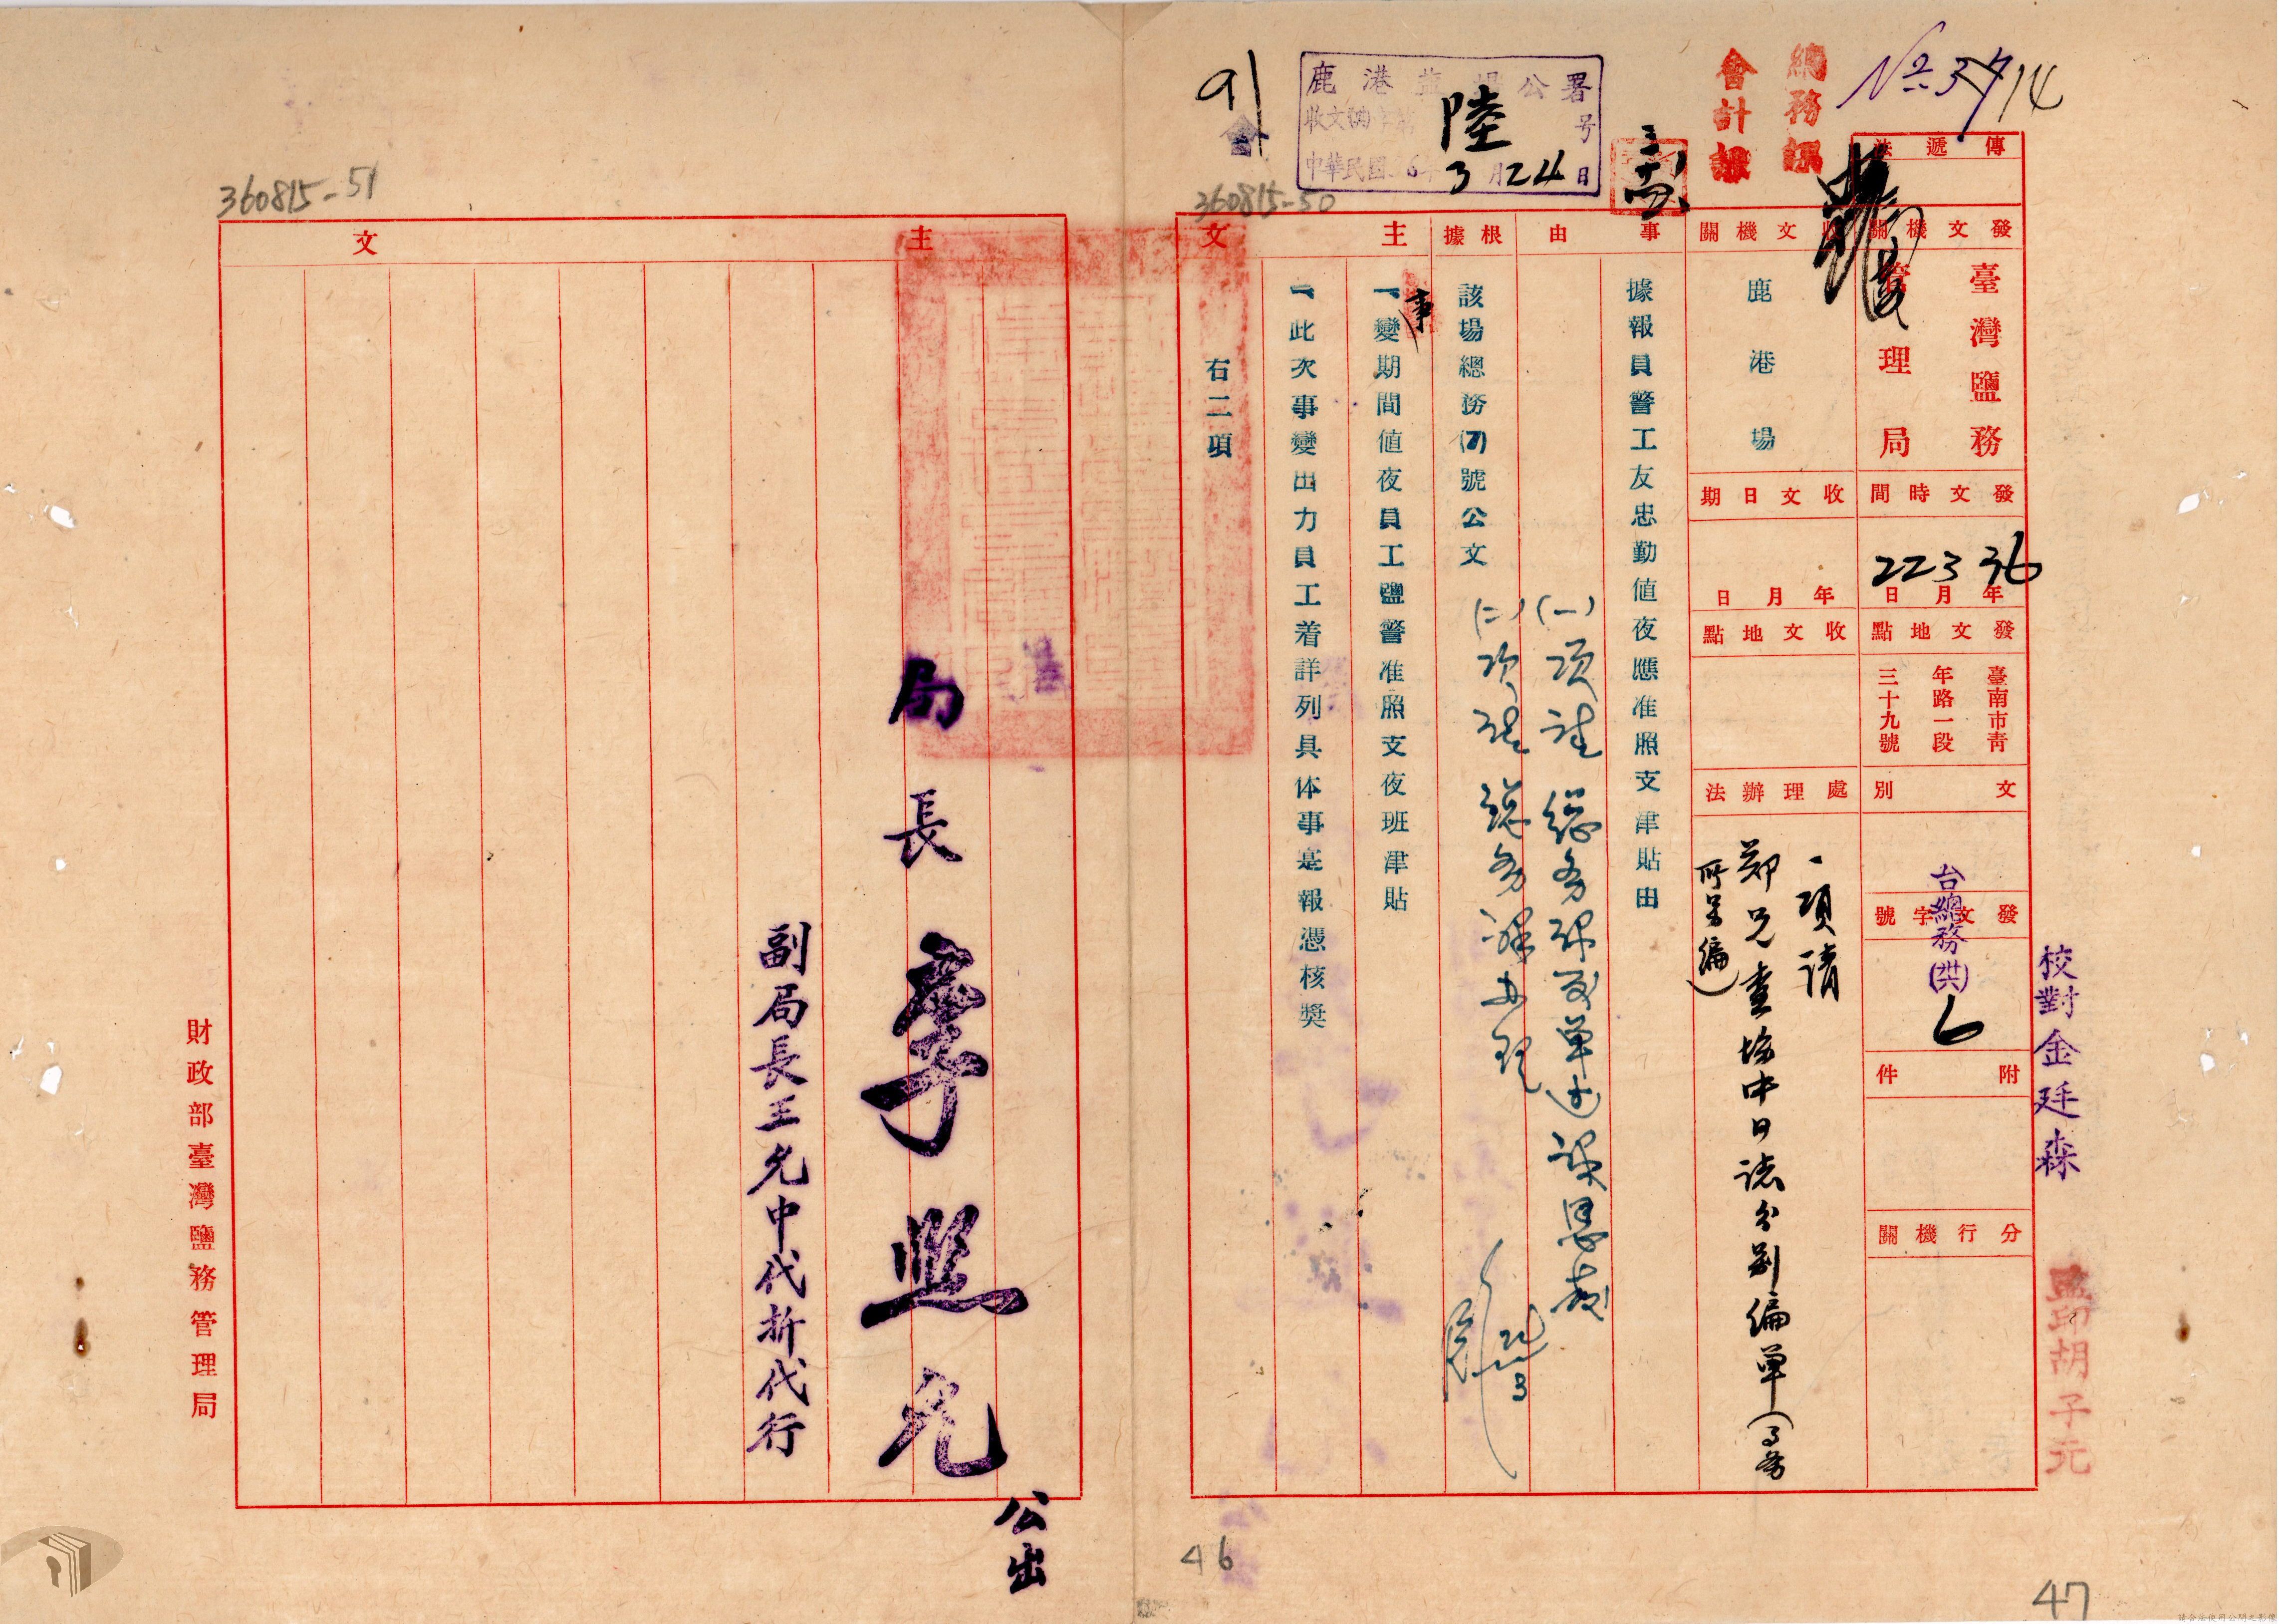 No. 3714
總務課
會計課
鹿港鹽場公署
收文 字第陸号
中華民國36年3月24日
91
360815-50
360815-51
傳遞法
發文機關
臺灣鹽務
管理局
發文時間
36年3月22日
發文地點
臺南市青
年路一段
三十九號
文別
發文字號
台總務(洪)6
附件
分行機關
校對金廷森
監印胡子元
收文機關
鹿港場
收文日期
年月日
收文地點
處理辦法
一項請
鄭兄查場中日誌分別編單
事由
據報員警工友忠勤值夜應准照支津貼由
(一)項請總務課
根據
該場總務(7)號公文
(二)項請總務課办理
22/3
主文
一、事變期間值夜員工鹽警准照支夜班津貼
一、此次事變出力員工着詳列具体事寔報憑核獎
右二項
主文
局長李照允
公出
副局長王允中代拆代行
財政部臺灣鹽務管理局
46
47